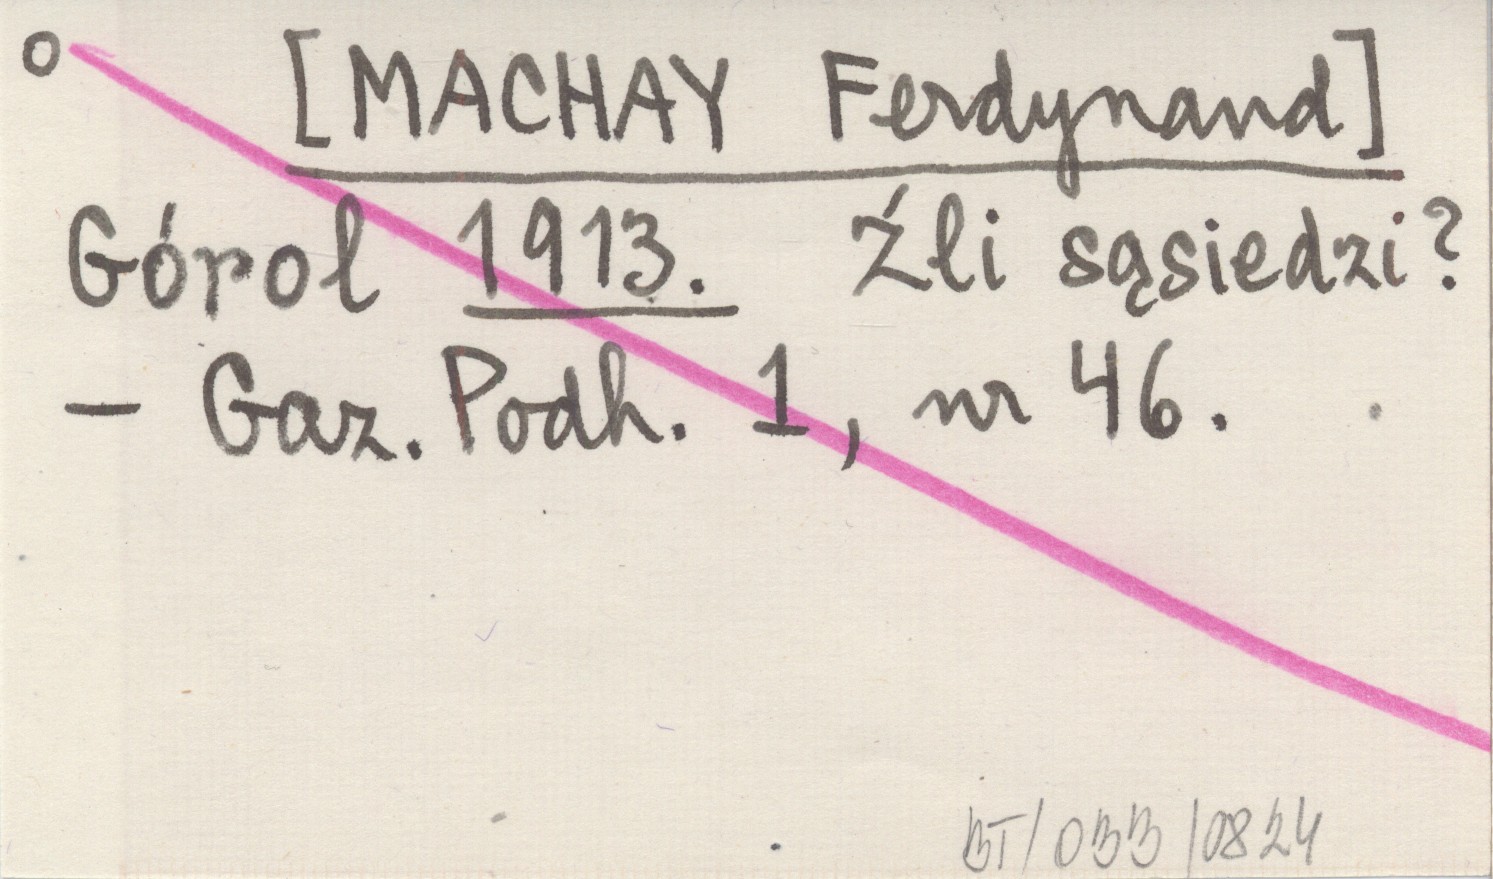 o [MACHAY Ferdynand]
Górol 1913. Źli sąsiedzi?
– Gaz. Podh. 1, nr 46.
BT/033/0824